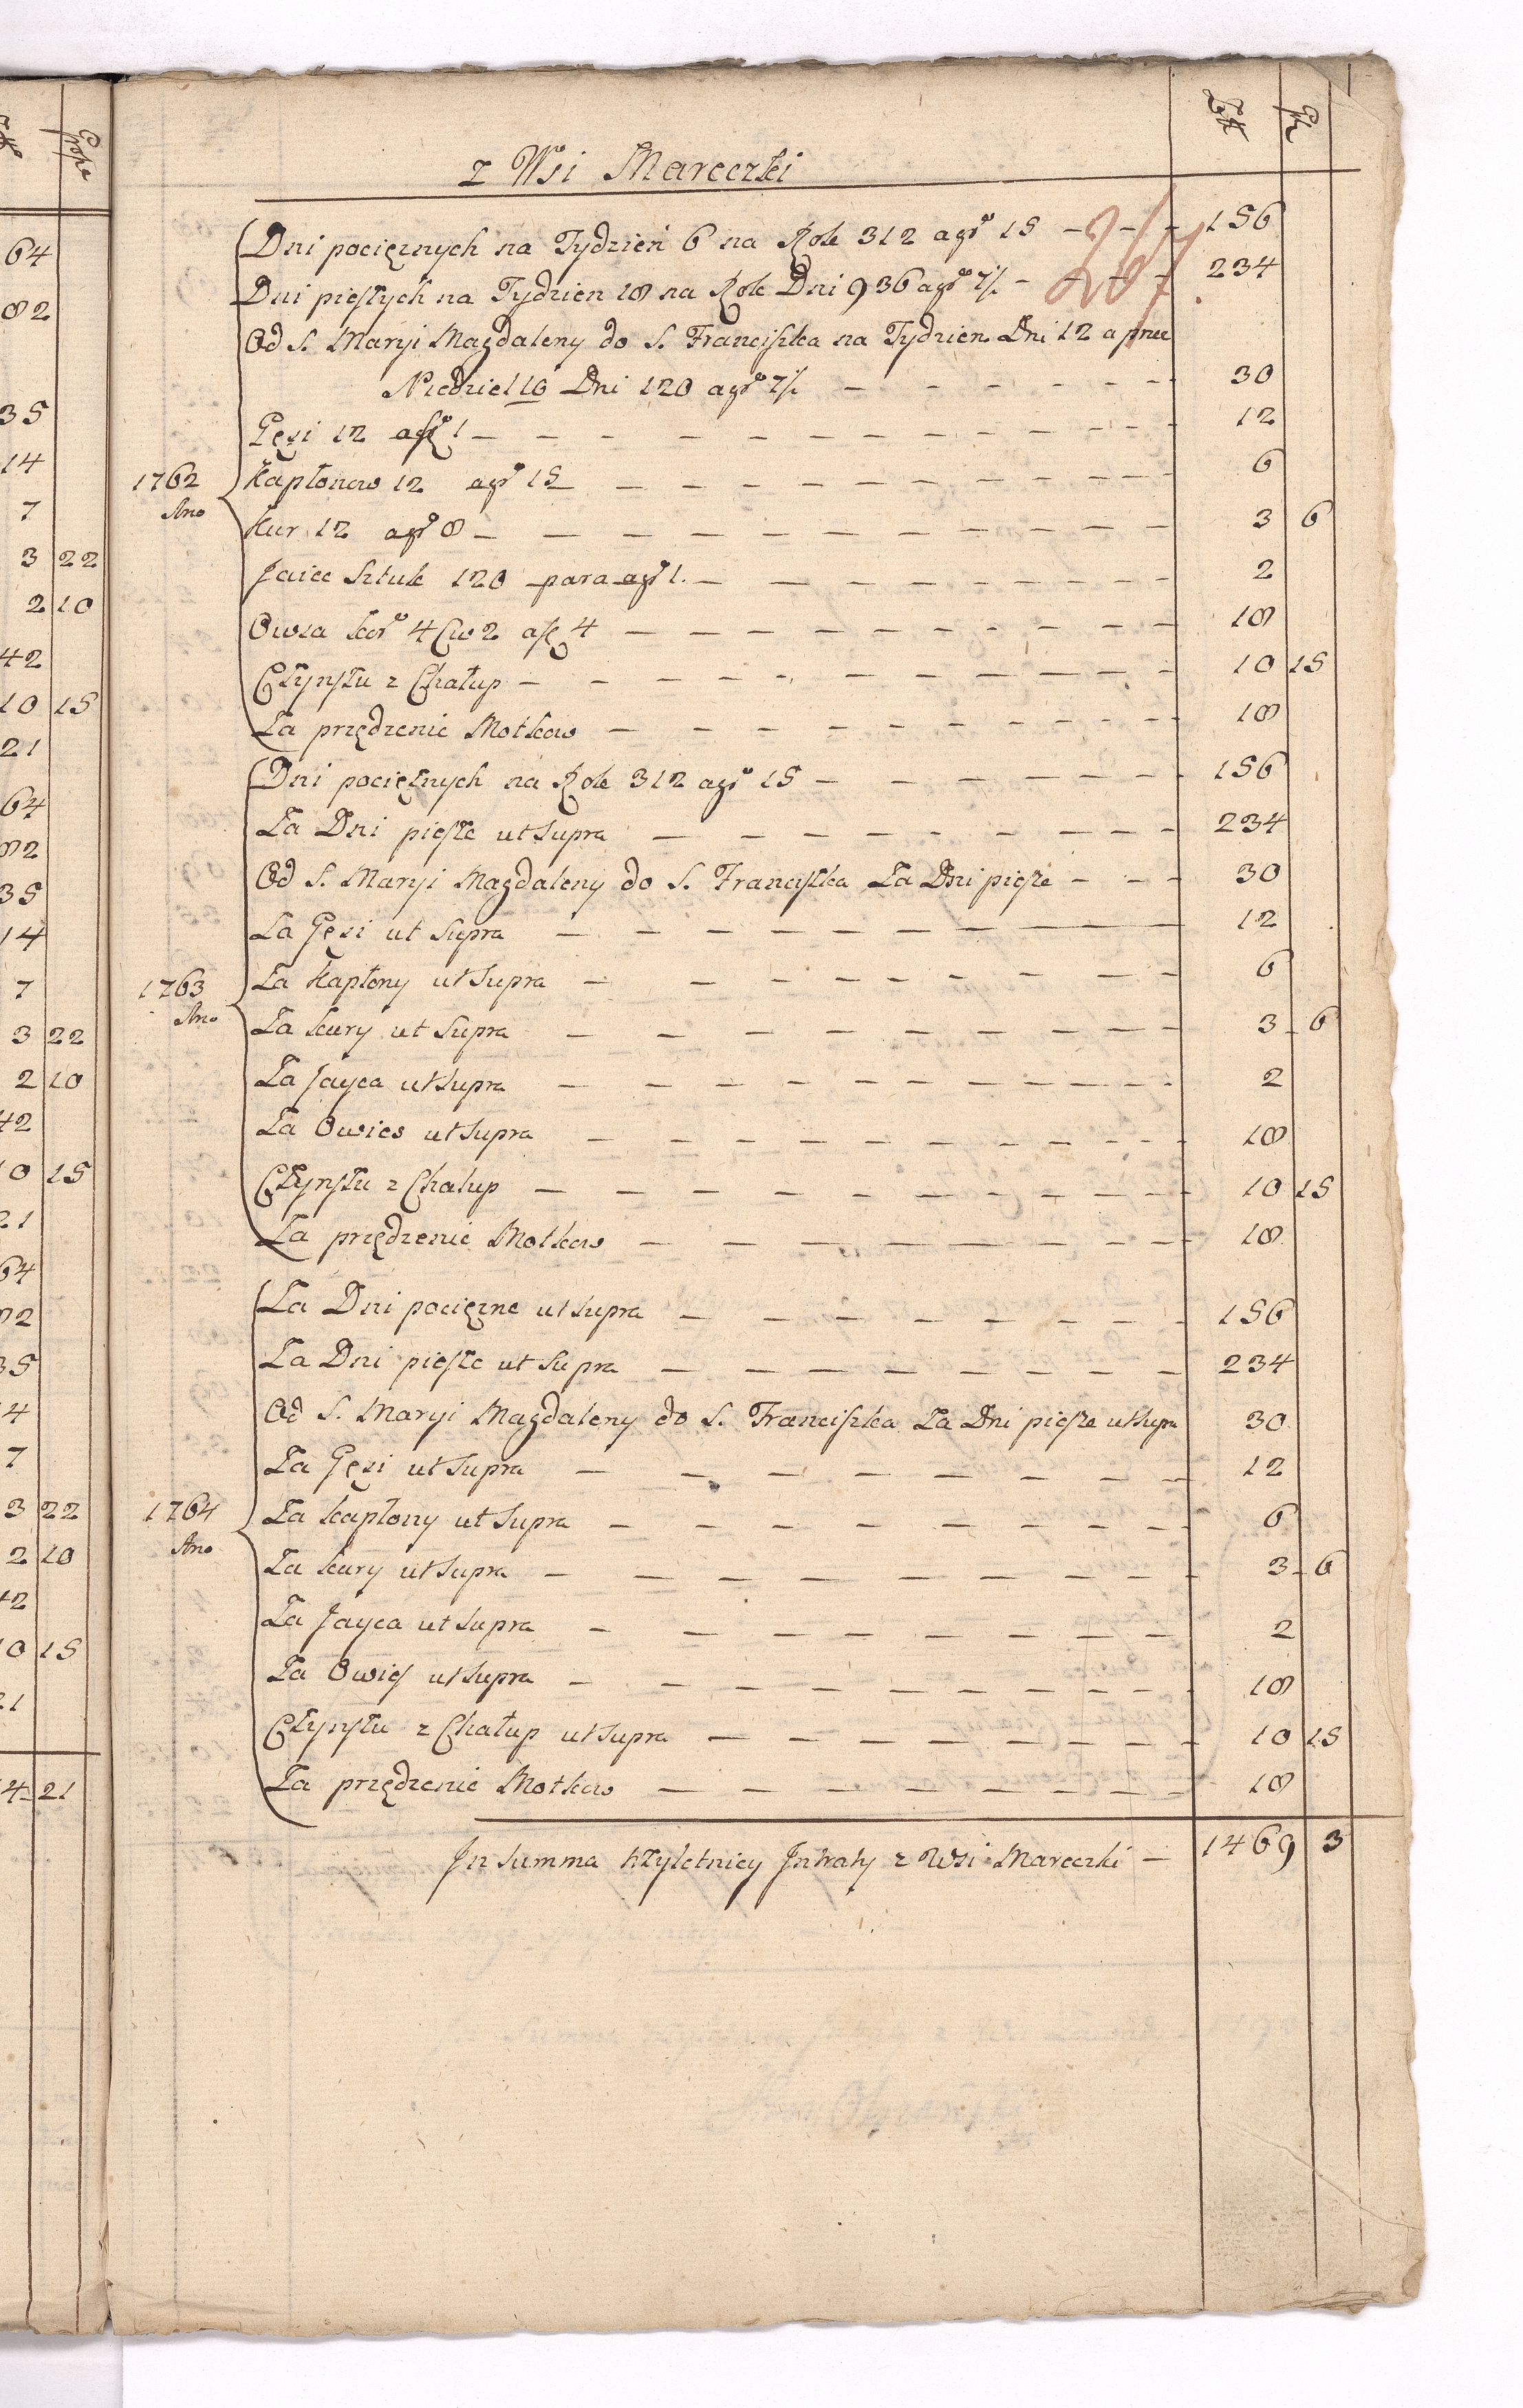 Złł Gr
z Wsi Mareczki
Dni pocięznych na Tydzień 6 na Rok 312 a gr 15 - - - 156
Dni pieszych na Tydzien 18 na Rok Dni 936 a gr 7½ - - - 234
Od S. Maryi Magdaleny do S. Franciszka na Tydzien Dni 12 a przez
Niedziel 10 Dni 120 a gr 7½ - - - 30
Gęsi 12 a zł 1 - - - 12
1762 Kapłonow 12 a gr 15 - - - 6
Ano
Kur 12 a gr 8 - - - 3 6
Jaiec Sztuk 120 para a gr 1. - - - 2
Owsa kor 4 Cw 2 a zł 4 - - - 18
Czynszu z Chałup - - - 10 15
Za przędzenie Motkow - - - 18
Dni pocięznych na Rok 312 a gr 15 - - - 156
Za Dni piesze ut Supra - - - 234
Od S. Maryi Magdaleny do S. Franciszka Za Dni piesze - - - 30
Za Gęsi ut Supra - - - 12
1763 Za Kapłony ut Supra - - - 6
Ano
Za kury ut Supra - - - 3 6
Za Jayca ut Supra - - - 2
Za Owies ut Supra - - - 18
Czynszu z Chalup - - - 10 15
Za przędzenie Motkow - - - 18
Za Dni pocięzne ut Supra - - - 156
Za Dni piesze ut Supra - - - 234
Od S. Maryi Magdaleny do S. Franciszka Za Dni piesze ut Supra 30
Za Gęsi ut Supra - - - 12
1764 Za kapłony ut Supra - - - 6
Ano
Za kury ut Supra - - - 3 6
Za Jayca ut Supra - - - 2
Za Owies ut Supra - - - 18
Czynszu z Chałup ut Supra - - - 10 15
Za przędzenie Motkow - - - 18
In Summa trzyletniey Intraty z Wsi Mareczki - 1469 3